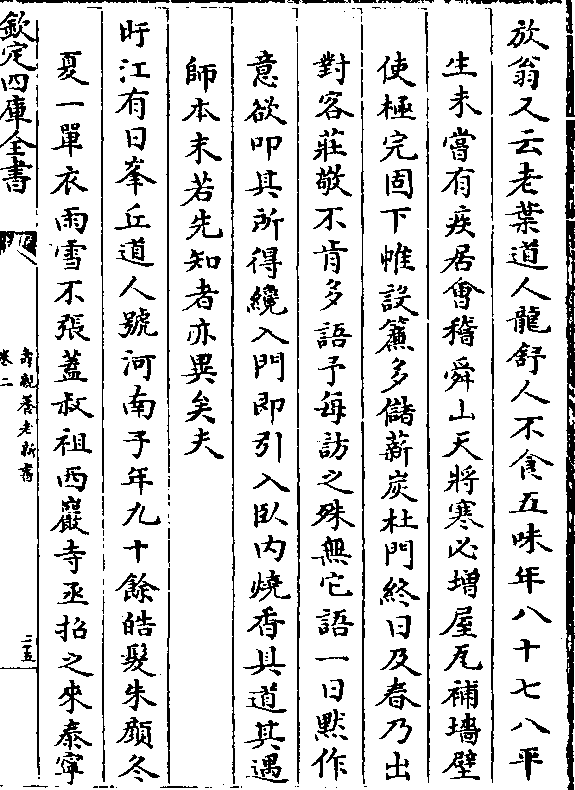 放翁又云老葉道人龍舒人不食五味年八十七八平
生未嘗有疾居會稽舜山天將寒必增屋瓦補墻壁
使極完固下帷設簾多儲薪炭杜門終日及春乃出
對客莊敬不肯多語予每訪之殊無它語一日黙作
意欲叩其所得纔入門即引入臥内燒香具道其遇
師本末若先知者亦異矣夫
盱江有日峯丘道人號河南子年九十餘皓髮朱顔冬
夏一單衣雨雪不張蓋叔祖西巖寺丞招之來泰寧
欽定四庫全書
壽親養老新書
卷二
二五